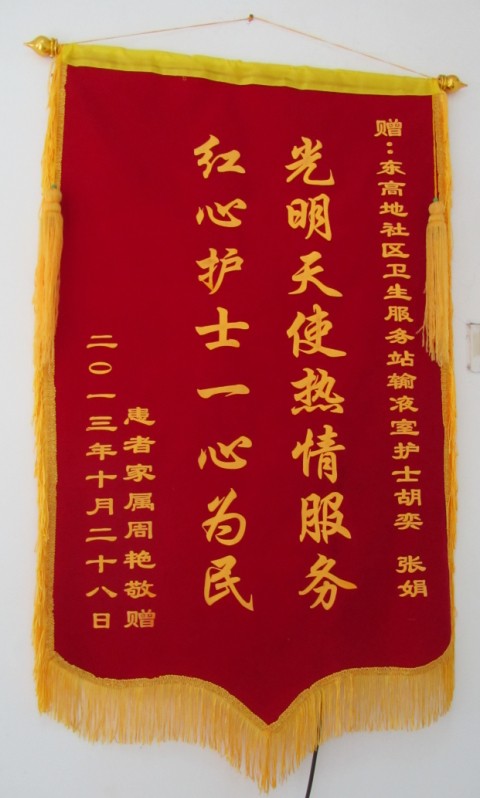 赠：东高地社区卫生服务站输液室护士胡奕 张娟
光明天使热情服务
红心护士一心为民
患者家属周艳敬赠
二〇一三年十月二十八日